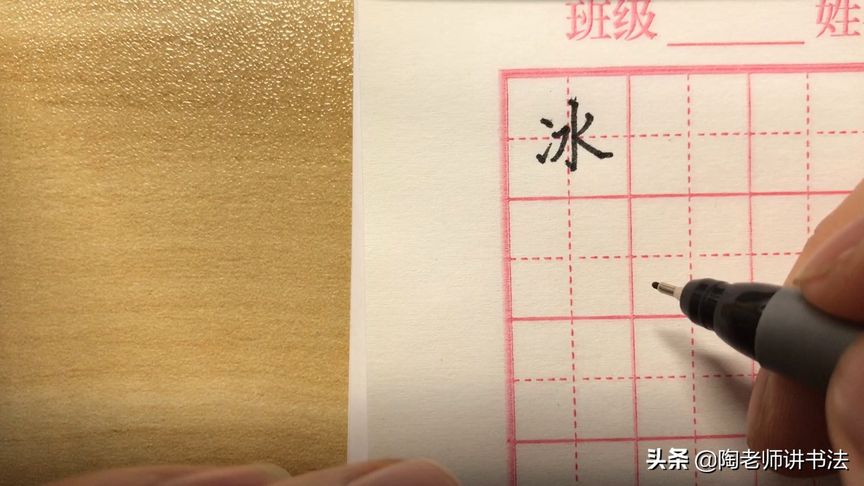 班级 ______ 姓
冰
头条 @陶老师讲书法